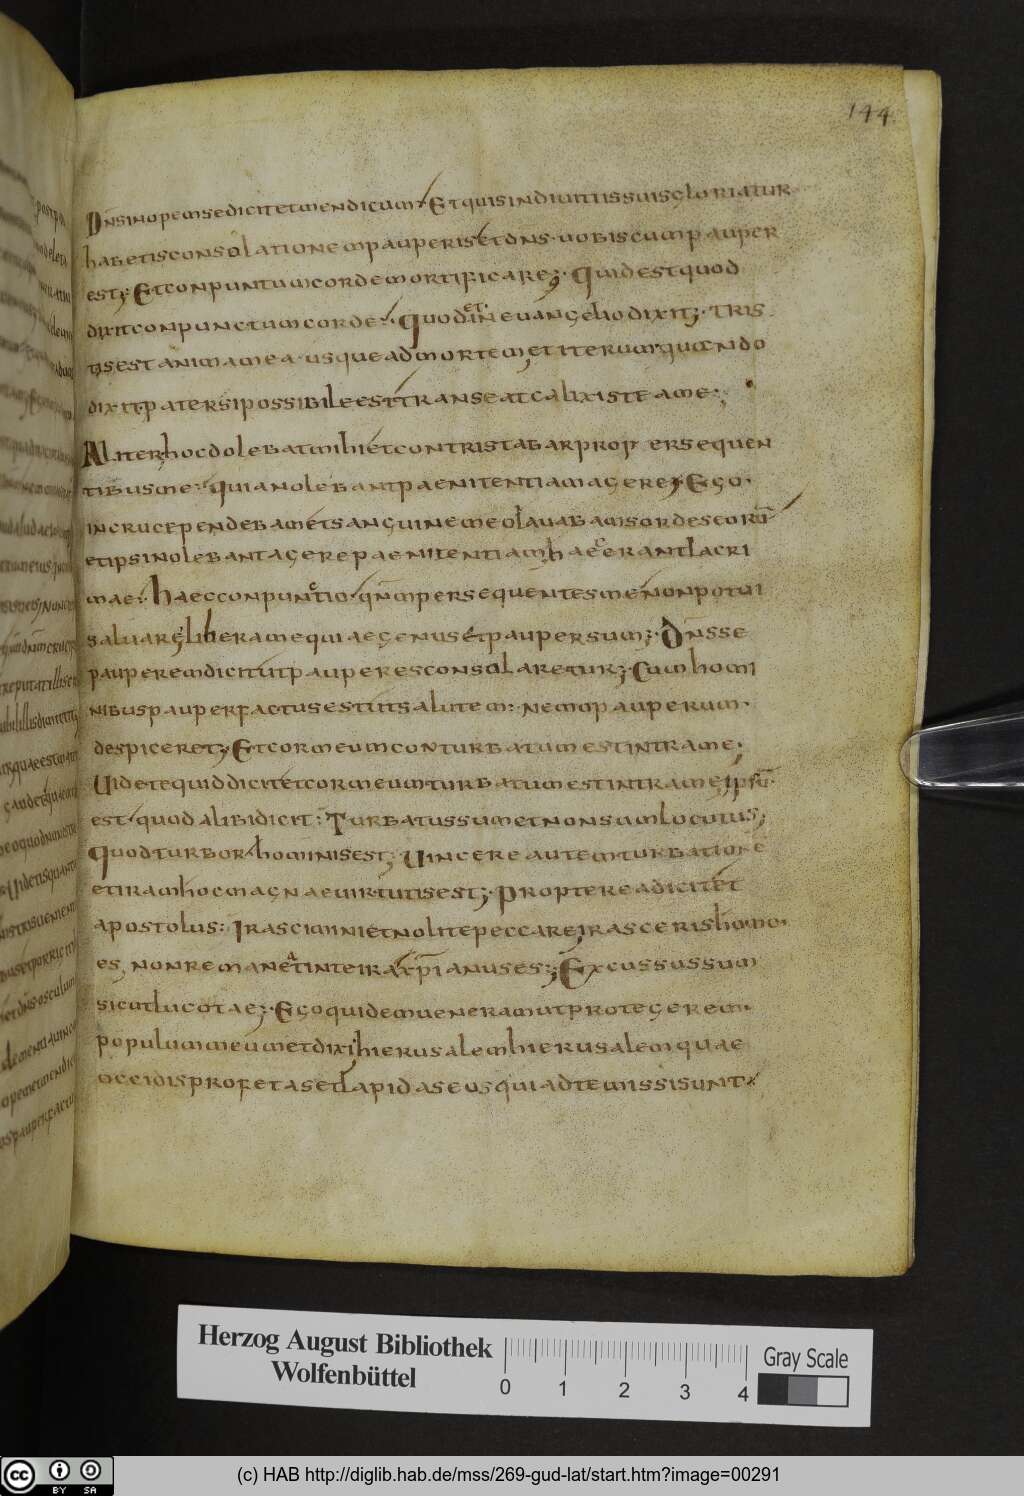 144
Dn̄s inopem se dicit et mendicum. Et quis in diuitiis suis gloriatur
habetis consolationem pauperis et dn̄s uobiscum pauper
est; Et conpuntum corde mortificare; Quid est quod
dixit conpunctum corde. Quod et in euangelio dixit; Tris
tis est anima mea usque ad mortem, et iterum quando
dixit pater si possibile est transeat calix iste a me.
Aliter hoc dolebat mihi et contristabar pro persequen
tibus me quia nolebant paenitentiam agere; Ego
in cruce pendebam et sanguine meo lauabam sordes eorū
et ipsi nolebant agere paenitentiam hae c erant lacri
mae. Haec conpunctio, qn̄m persequentes me non potui
saluare; libera me quia egenus et pauper sum; Dn̄s se
pauperem dicit ut pauperes consolaretur; Cum homi
nibus pauper factus est ut salutem nemo pauperum
despiceret; Et cor meum conturbatum est intra me;
Uidete quid dicit et cor meum turbatum est intra me, ipsū
est quod alibi dicit: Turbatus sum et non sum locutus;
Quod turbor hominis est; Uincere autem turbatione
et iram hoc magnae uirtutis est; Propterea dicit et
apostolus: Irascimini et nolite peccare, irasceris homo
es, non remaneat in te ira xp̄ianus es; Excussus sum
sicut lucotae; Ego quidem ueneram ut protegerem
populum meum et dixi hierusalem hierusalem quae
occidis profetas et lapidas eos qui ad te missi sunt
Herzog August Bibliothek
Wolfenbüttel
0 1 2 3 4
Gray Scale
cc BY SA
(c) HAB http://diglib.hab.de/mss/269-gud-lat/start.htm?image=00291